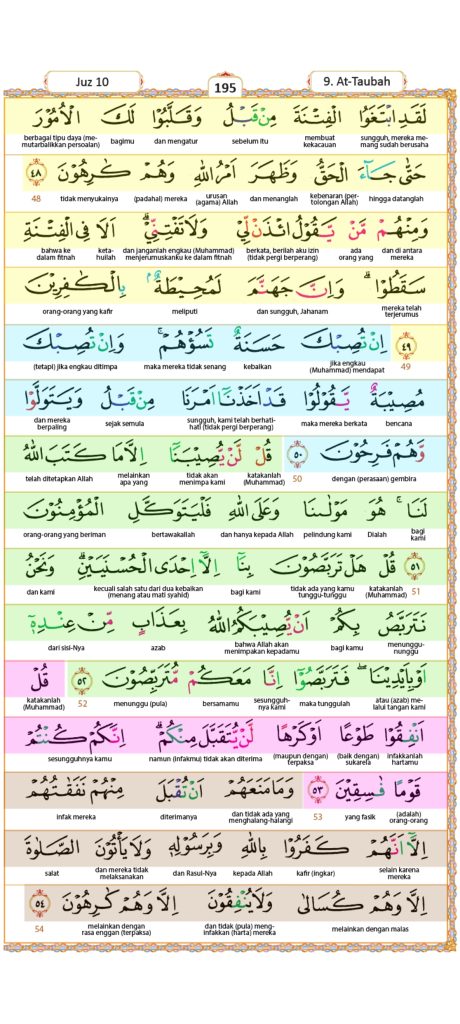 Juz 10
195
9. At-Taubah
لَقَدِ ابْتَغَوُا الْفِتْنَةَ مِنْ قَبْلُ وَقَلَّبُوْا لَكَ الْاُمُوْرَ
sungguh, mereka memang sudah berusaha membuat kekacauan sebelum itu dan mengatur bagimu berbagai tipu daya (memutarbalikkan persoalan)
حَتّٰى جَاۤءَ الْحَقُّ وَظَهَرَ اَمْرُ اللّٰهِ وَهُمْ كٰرِهُوْنَ ٤٨
hingga datanglah kebenaran (pertolongan Allah) dan menanglah urusan (agama) Allah (padahal) mereka tidak menyukainya 48
وَمِنْهُمْ مَّنْ يَّقُوْلُ ائْذَنْ لِّيْ وَلَا تَفْتِنِّيْۗ اَلَا فِى الْفِتْنَةِ
dan di antara mereka ada orang yang berkata, berilah aku izin (tidak pergi berperang) dan janganlah engkau (Muhammad) menjerumuskanku ke dalam fitnah ketahuilah bahwa ke dalam fitnah
سَقَطُوْاۗ وَاِنَّ جَهَنَّمَ لَمُحِيْطَةٌ ۢ بِالْكٰفِرِيْنَ
mereka telah terjerumus dan sungguh, Jahanam meliputi orang-orang yang kafir
٤٩ اِنْ تُصِبْكَ حَسَنَةٌ تَسُؤْهُمْۚ وَاِنْ تُصِبْكَ
49 jika engkau (Muhammad) mendapat kebaikan maka mereka tidak senang (tetapi) jika engkau ditimpa
مُصِيْبَةٌ يَّقُوْلُوْا قَدْ اَخَذْنَآ اَمْرَنَا مِنْ قَبْلُ وَيَتَوَلَّوْا
bencana maka mereka berkata sungguh, kami telah berhati-hati (tidak pergi berperang) sejak semula dan mereka berpaling
وَّهُمْ فَرِحُوْنَ ٥٠ قُلْ لَّنْ يُّصِيْبَنَآ اِلَّا مَا كَتَبَ اللّٰهُ
dengan (perasaan) gembira 50 katakanlah (Muhammad) tidak akan menimpa kami melainkan apa yang telah ditetapkan Allah
لَنَاۚ هُوَ مَوْلٰىنَا وَعَلَى اللّٰهِ فَلْيَتَوَكَّلِ الْمُؤْمِنُوْنَ
bagi kami Dialah pelindung kami dan hanya kepada Allah bertawakallah orang-orang yang beriman
٥١ قُلْ هَلْ تَرَبَّصُوْنَ بِنَآ اِلَّآ اِحْدَى الْحُسْنَيَيْنِۗ وَنَحْنُ
51 katakanlah (Muhammad) tidak ada yang kamu tunggu-tunggu bagi kami kecuali salah satu dari dua kebaikan (menang atau mati syahid) dan kami
نَتَرَبَّصُ بِكُمْ اَنْ يُّصِيْبَكُمُ اللّٰهُ بِعَذَابٍ مِّنْ عِنْدِهٖٓ
menunggu-nunggu bagi kamu bahwa Allah akan menimpakan kepadamu azab dari sisi-Nya
اَوْ بِاَيْدِيْنَاۖ فَتَرَبَّصُوْٓا اِنَّا مَعَكُمْ مُّتَرَبِّصُوْنَ ٥٢ قُلْ
atau (azab) melalui tangan kami maka tunggulah sesungguhnya kami bersamamu menunggu (pula) 52 katakanlah (Muhammad)
اَنْفِقُوْا طَوْعًا اَوْ كَرْهًا لَّنْ يُّتَقَبَّلَ مِنْكُمْۗ اِنَّكُمْ كُنْتُمْ
infakkanlah hartamu (baik dengan) sukarela (maupun dengan) terpaksa namun (infakmu) tidak akan diterima sesungguhnya kamu
قَوْمًا فٰسِقِيْنَ ٥٣ وَمَا مَنَعَهُمْ اَنْ تُقْبَلَ مِنْهُمْ نَفَقٰتُهُمْ
(adalah) orang-orang yang fasik 53 dan tidak ada yang menghalang-halangi diterimanya infak mereka
اِلَّآ اَنَّهُمْ كَفَرُوْا بِاللّٰهِ وَبِرَسُوْلِهٖ وَلَا يَأْتُوْنَ الصَّلٰوةَ
selain karena mereka kafir (ingkar) kepada Allah dan Rasul-Nya dan mereka tidak melaksanakan salat
اِلَّا وَهُمْ كُسَالٰى وَلَا يُنْفِقُوْنَ اِلَّا وَهُمْ كٰرِهُوْنَ ٥٤
melainkan dengan malas dan tidak (pula) menginfakkan (harta) mereka melainkan dengan rasa enggan (terpaksa) 54